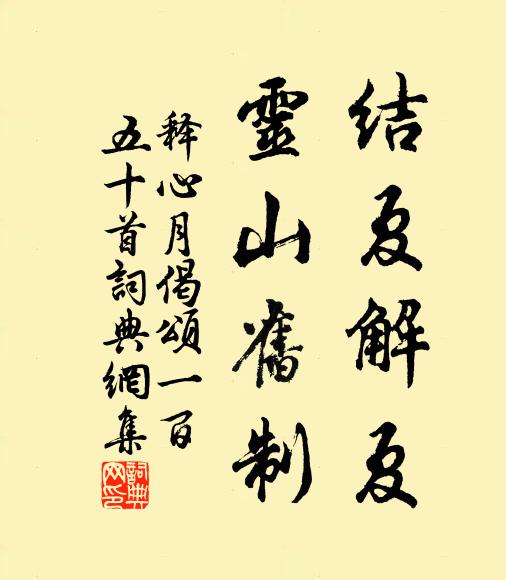 结夏解夏
靈山舊制
释心月偈頌一百
五十首詞典網集
詞典
网印